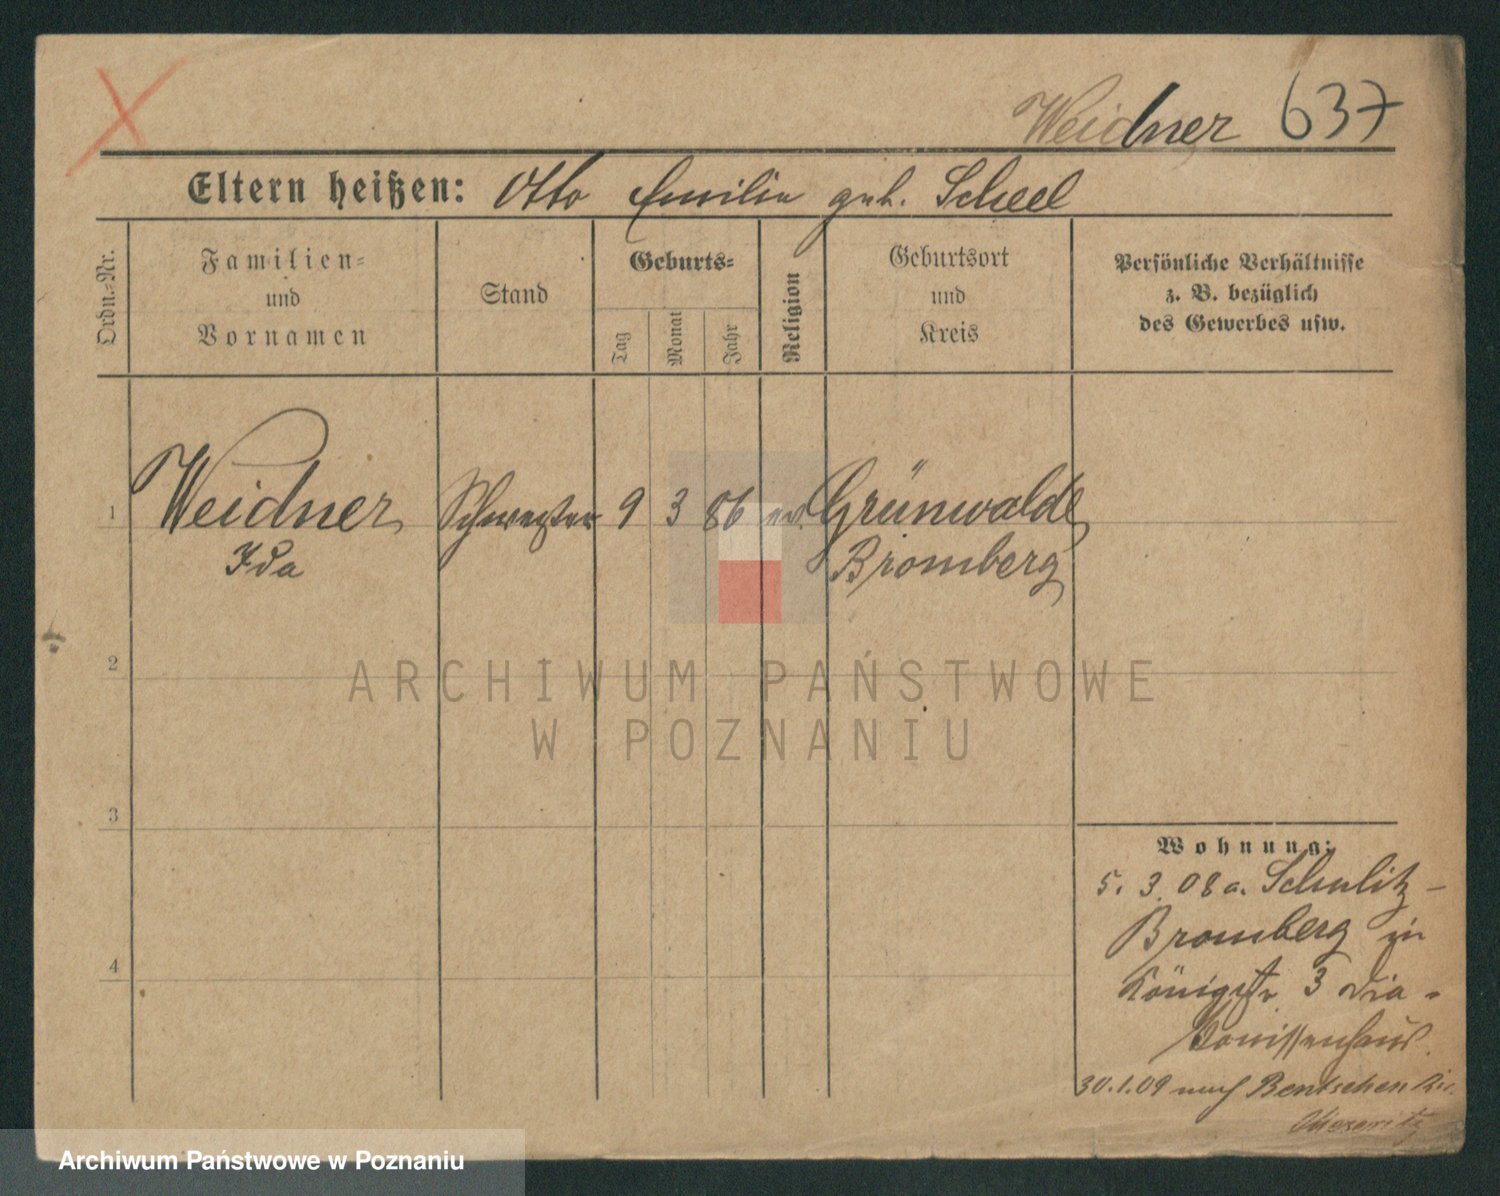 Weidner 637
Eltern heißen: Otto Emilie geb. Scheel
Ordn.-Nr.
Familien-
und
Vornamen
Stand
Geburts-
Tag
Monat
Jahr
Religion
Geburtsort
und
Kreis
Persönliche Verhältnisse
z. B. bezüglich
des Gewerbes usw.
1 Weidner Schwester 9 3 86 ev. Grünwalde
Ida Bromberg
2
ARCHIWUM PAŃSTWOWE
W POZNANIU
3
Wohnung:
5. 3. 08 a. Schulitz-
Bromberg in
Königstr 3 Dia-
konissenhaus.
4
30.1.09 nach Bentschen Kr.
Meseritz
Archiwum Państwowe w Poznaniu